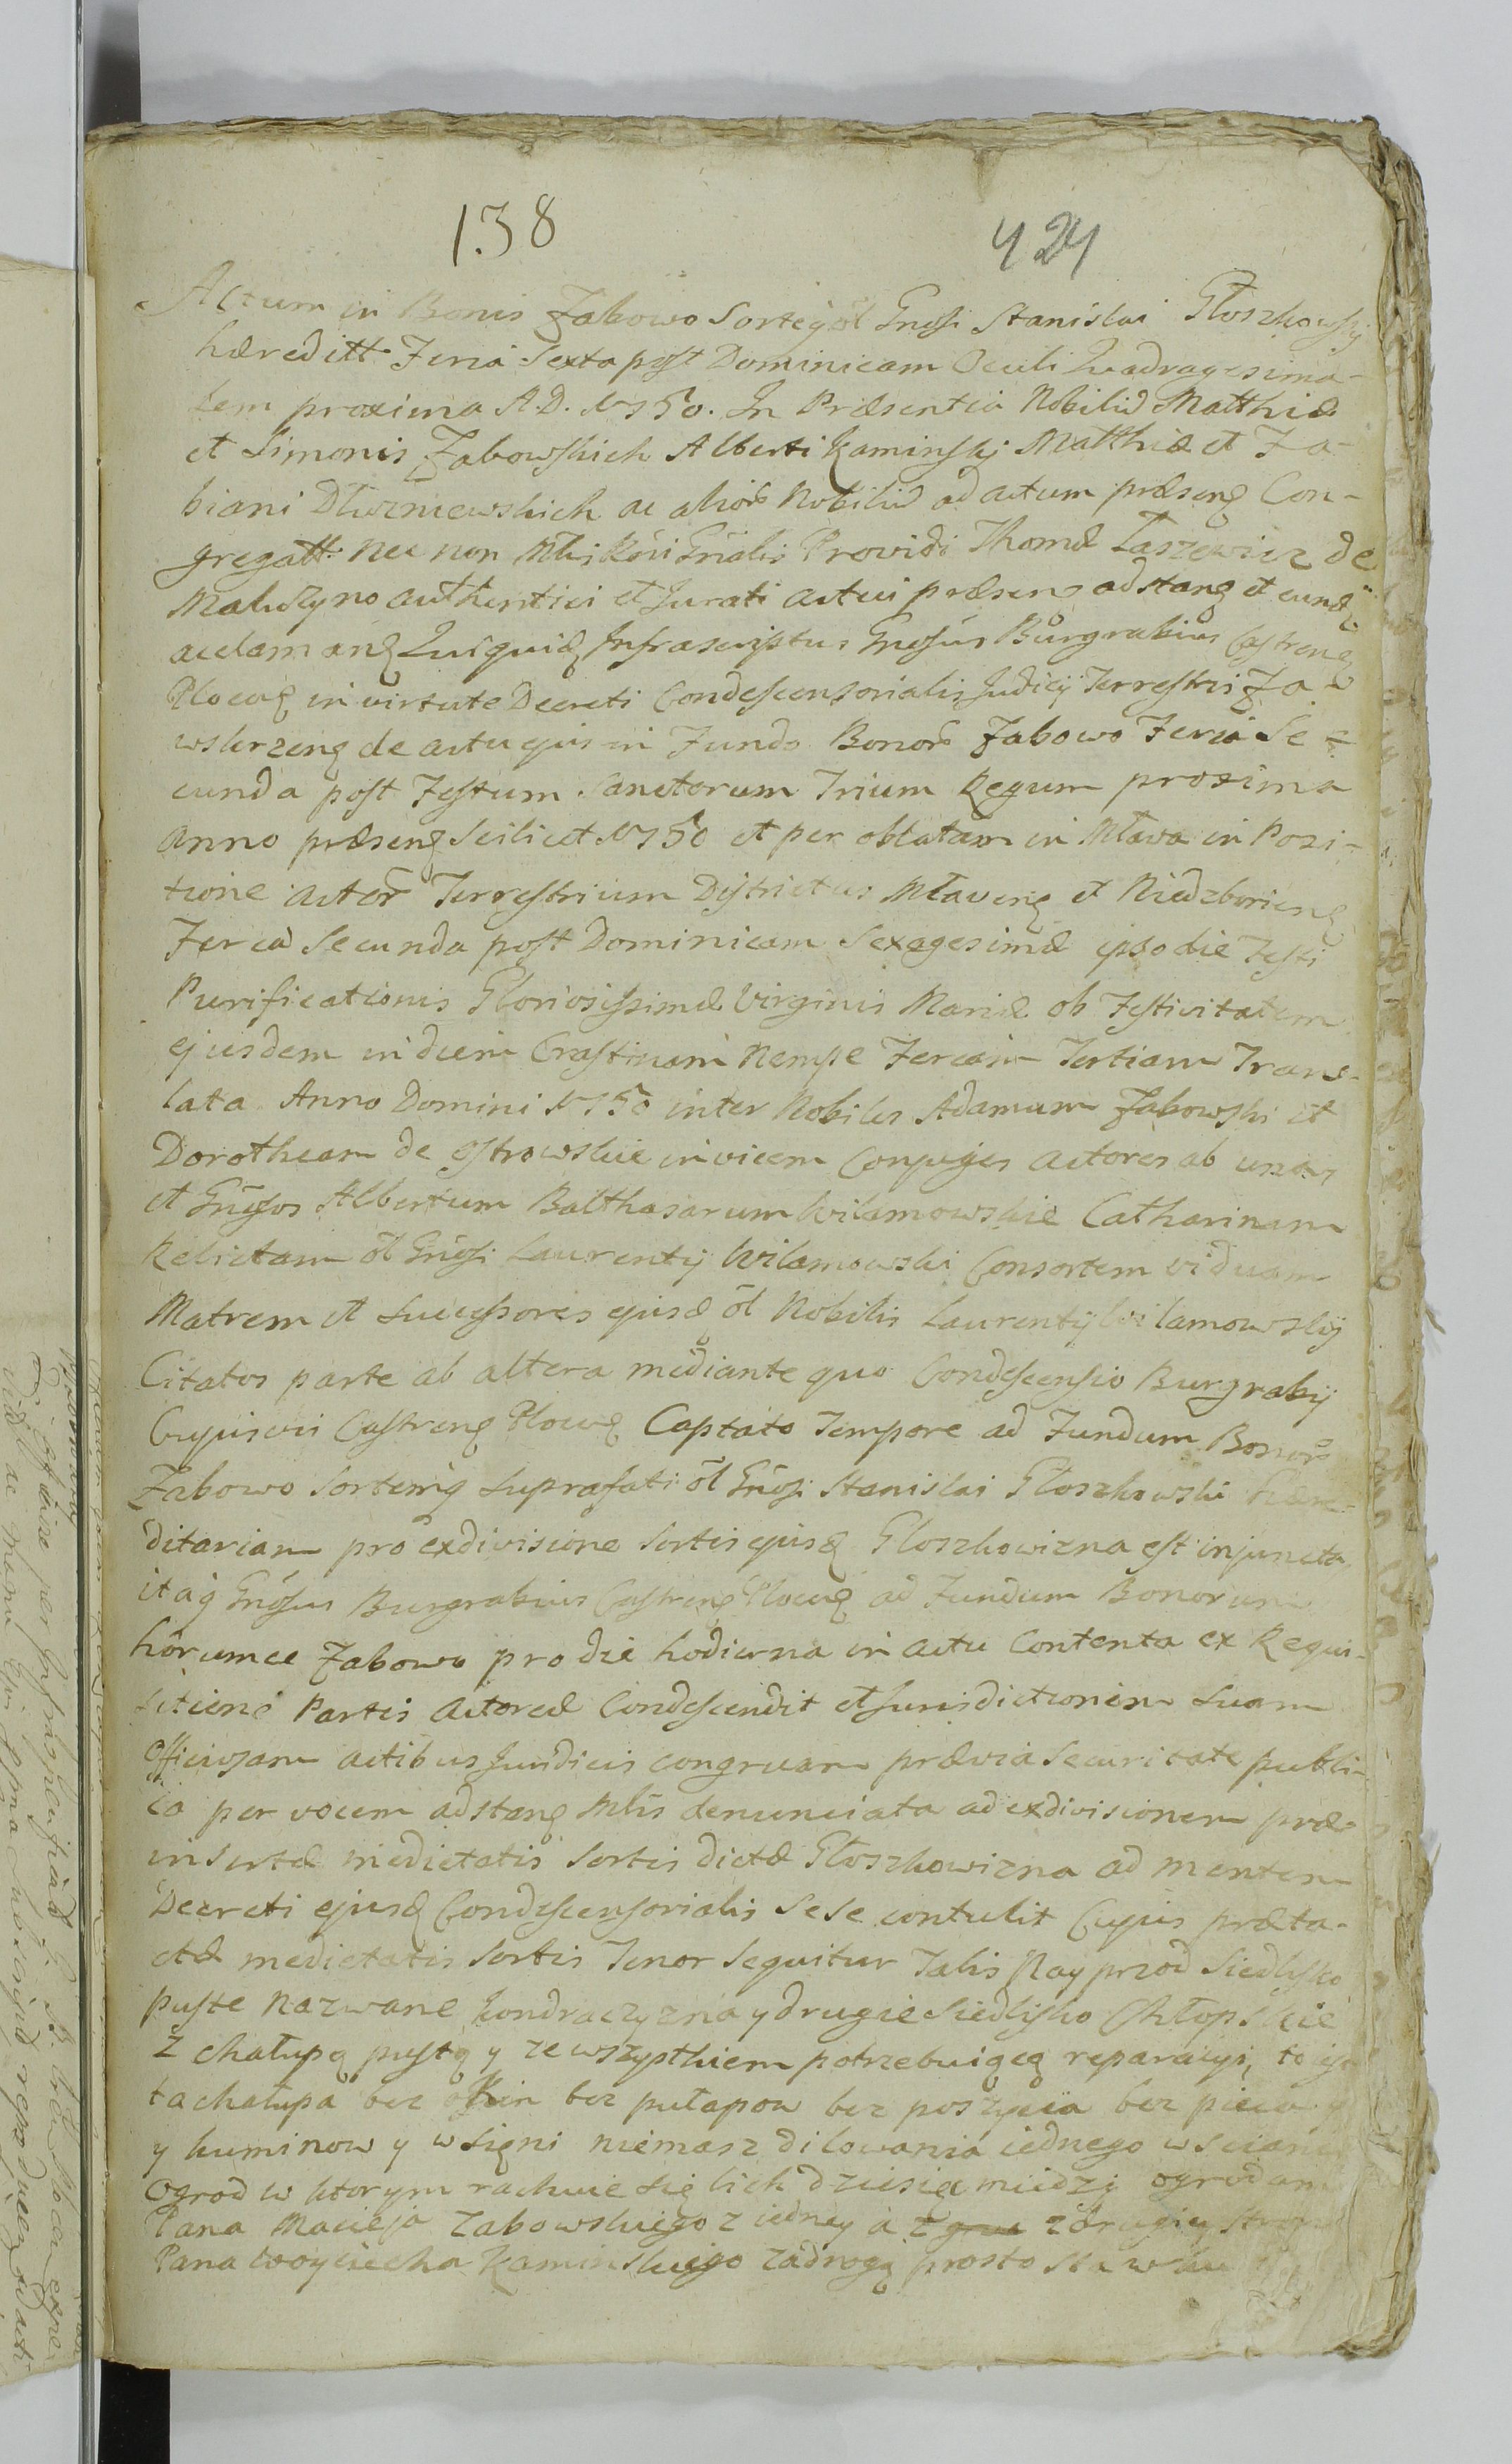 138 424
Actum in Bonis Żabowo Sorteq ol Gnosi Stanislai Głoszkowskj
hæreditt Feria Sexta post Dominicam Oculi Quadragesima-
lem proxima A.D. 1750. In Præsentia Nobiliū Matthiæ
et Simonis Żabowskich Alberti Kaminskj Matthiæ et Fa-
biani Dłużniewskich ac alior Nobiliū ad actum præseng Con-
gregatt. nec non Mlis Rgni Gnalis Providi Thomæ Łaszewicz de
Małużyno authentici et Jurati actui præseng adstang et eund
acclamang Quiquid Infrascriptus Gnosus Burgrabius Castreng
Ploceng in virtute Decreti Condescensorialis Judicij Terrestris Za-
wskrzeng de actu ejus in Fundo Bonor Żabowo Feria Se-
cunda post Festum Sanctorum Trium Regum proxima
Anno præseng Scilicet 1750 et per oblatam in Mława in Posi-
tione actor Terrestrium Districtus Mlaveng et Niedzborieng
Feria Secunda post Dominicam Sexagesimæ ipso die Festi
Purificationis Gloriosissimæ Virginis Mariæ ob Festivitatem
ejusdem in diem Crastinam Nempe Feriam Tertiam Trans-
lata Anno Domini 1750 inter Nobiles Adamum Żabowski et
Dorotheam de Ostrowskie invicem Conjuges actores ab una
et Gnosos Albertum Balthasarum Wilamowskie Catharinam
Relictam ol Gnosi Laurentij Wilamowski Consortem viduam
Matrem et Successores ejusd ol Nobilis Laurentij Wilamowskij
Citatos parte ab altera mediante quo Condescensio Burgrabij
Cujusvis Castreng Ploceng Captato Tempore ad Fundum Bonor
Żabowo Sortemq Suprafati ol Gnosi Stanislai Głoszkowski Hære-
ditariam pro exdivisione Sortis ejusd Głoszkowizna est injuncta,
itaq Gnosus Burgrabius Castreng Ploceng ad Fundum Bonorum
horumce Żabowo pro die hodierna in actu Contenta ex Requi-
sitione Partis Actoreæ Condescendit et Jurisdictionem Suam
Officiosam actibus Juridicis congruam prævia Securitate publi-
ca per vocem adstang Mlis denunciata ad exdivisionem præ-
insertæ medietatis Sortis dictæ Głoszkowizna ad mentem
Decreti ejusd Condescensorialis Sese contulit Cujus præta-
ctæ medietatis Sortis Tenor Sequitur Talis Nayprzod Siedlisko
puste nazwane Kondraczyzna y drugie Siedlisko Chłopskie
z chałupą pustą y ze wszystkiem potrzebuiącą reparacyi, to ies
ta chałupa bez okin bez pułapow bez poszycia bez pieca y
y kuminow y w Sieni niemasz dilowania iednego w scianie
Ogrod w ktorym rachuie się lich dziesięc miedzy ogrodam
Pana Macieja Zabowskiego z iedney a z drugiey Strony
Pana Woyciecha Kaminskiego zadrogą prosto